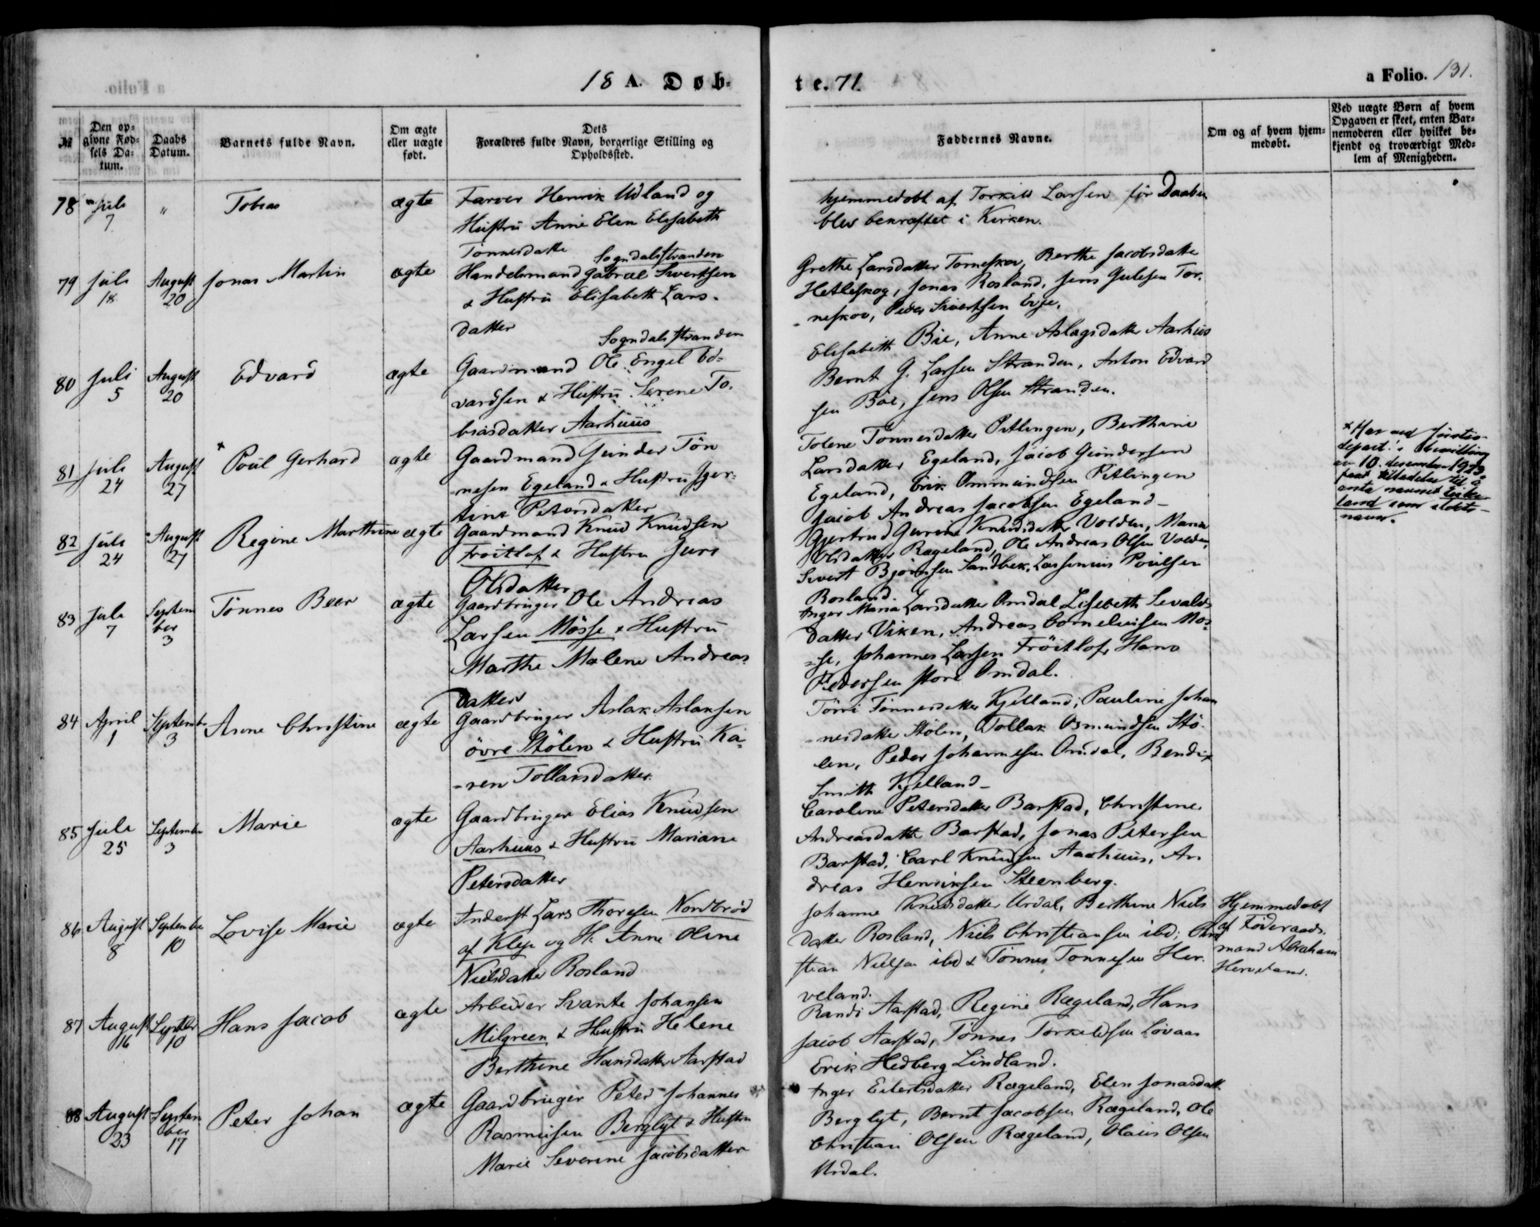 18 A. Døb-
te. 71.
a Folio. 131.
№
Den op-
givne Fød-
sels Da-
tum.
Daabs
Datum.
Barnets fulde Navn.
Om ægte
eller uægte
født.
Dets
Forældres fulde Navn, borgerlige Stilling og
Opholdssted.
Faddernes Navne.
Om og af hvem hjem-
medøbt.
Ved uægte Børn af hvem
Opgaven er skeet, enten Bar-
nemoderen eller hvilket be-
kjendt og troværdigt Med-
lem af Menigheden.
78 Juli 7 " Tobias ægte
Farver Henrik Udland og
Hustru Anne Elen Elisabeth
Tønnesdatte
hjemmedøbt af Torkild Larsen før Daaben
blev bekræftet i Kirken.
79 Juli 18 August 20 Jonas Martin ægte
Sogndalsstranden
Handelsmand Gabriel Sivertsen
& Hustru Elisabeth Lars-
datter
Grethe Larsdatter Torneskov, Berthe Jacobsdatte
Hetleskog, Jonas Rosland, Jens Julesen Tor-
neskov, Peder Sivertsen Eeje.
80 Juli 5 August 20 Edvard ægte
Sogndalsstranden
Gaardmand Ole Engel Ed-
vardsen & Hustru Serene To-
biasdatter Aarhuus
Elisabeth Bøe, Anne Aslagsdatte Aarhus
Bernt G. Larsen Stranden, Anton Edvard
sen Bøe, Jens Olsen Stranden.
81 Juli 24 August 27 × Poul Gerhard ægte
Gaardmand Gunder Tøn
-nesen Egeland & Hustru Jger-
tine Petersdatter
Tolene Tønnesdatter Pitlingen, Berthine
Larsdatter Egeland, Jacob Gundersen
Egeland, Erik Ommundsen Pitlingen
Jacob Andreas Jacobsen Egeland-
× Har ved justis-
depart.'s bevilling
av 10. desember 1923
faat tilladelse til å
anta navnet Eike-
land som slekts-
navn.
82 Juli 24 August 27 Regine Marthine ægte
Gaardmand Knud Knudsen
Frøitlof & Hustru Juri
Olsdatter
Gjertrud Gurine Knudsdatte Volden, Maria
Olsdatter Rægeland, Ole Andreas Olsen Volden,
Sivert Bjørnsen Sandbek, Larsenius Poulsen
Rosland.
83 Juli 7 Septem
ber 3 Tønnes Beer ægte
Gaardbruger Ole Andreas
Larsen Mösse & Hustru
Marthe Malene Andreas-
datter
Inger Maria Larsdatter Omdal Lisebeth Sevalds
datter Viken, Andreas Corneliusen Mös-
-se, Johannes Larsen Frøitlof, Hans
Pedersen store Omdal.
84 April 1 Septembr 3 Anne Christine ægte
Gaardbruger Aslak Aslaksen
øvre Stølen & Hustru Ka-
-ren Tollaksdatter
Tørri Tønnesdatter Kjelland, Pauline Johan
-nesdatte Stølen, Tollak Osmundsen Stø-
len, Peder Johannesen Omdal, Bendix
Smith Kjelland-
85 Juli 25 September 3 Marie ægte
Gaardbruger Elias Knudsen
Aarhuus & Hustru Mariane
Petersdatter
Caroline Petersdatter Barstad, Christine
Andreasdatte Barstad, Jonas Petersen
Barstad, Carl Knudsen Aarhuus, An
dreas Henriksen Steenberg.
86 August 8 September 10 Lovise Marie ægte
Inderst Lars Thoresen Nordbrød
af Klep og H. Anne Oline
Nielsdatte Rosland
Johanne Knudsdatter Urdal, Berthine Niels
datter Rosland, Niels Christiansen ibd: Chri
stian Nielsen ibd & Tønnes Tønnesen Her-
veland.
Hjemmedøbt
af Föderaads-
mand Abraham
Herveland.
87 August 16 Septbr 10 Hans Jacob ægte
Arbeider Svante Johansen
Milgreen & Hustru Helene
Berthine Hansdatter Aarstad
Randi Aarstad, Regine Rægeland, Hans
Jacob Aarstad, Tønnes Torkildsen Løvaas
Erik Hedberg Lindland.
88 August 23 Septem
ber 17 Peter Johan ægte
Gaardbruger Peter Johannes
Rasmusen Berglyt & Hustru
Marie Severine Jacobsdatter
Inger Eilertsdatter Rægeland, Elen Jonasdatt
Berglyt, Bernt Jacobsen Rægeland, Ole
Christian Olsen Rægeland, Olaus Olsen
Urdal.